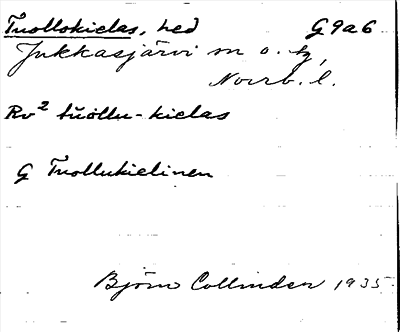 Tuollokielas, hed G9a6
Jukkasjärvi sn o. tg,
Norrb. l.
Rv² tŭŏllu-kielas
G Tuollukielinen
Björn Collinder 1935